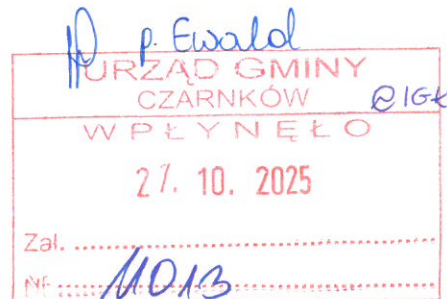 p. Ewald
URZĄD GMINY
CZARNKÓW
WPŁYNĘŁO
27. 10. 2025
Zał. ........................
Nr ........................ 11013